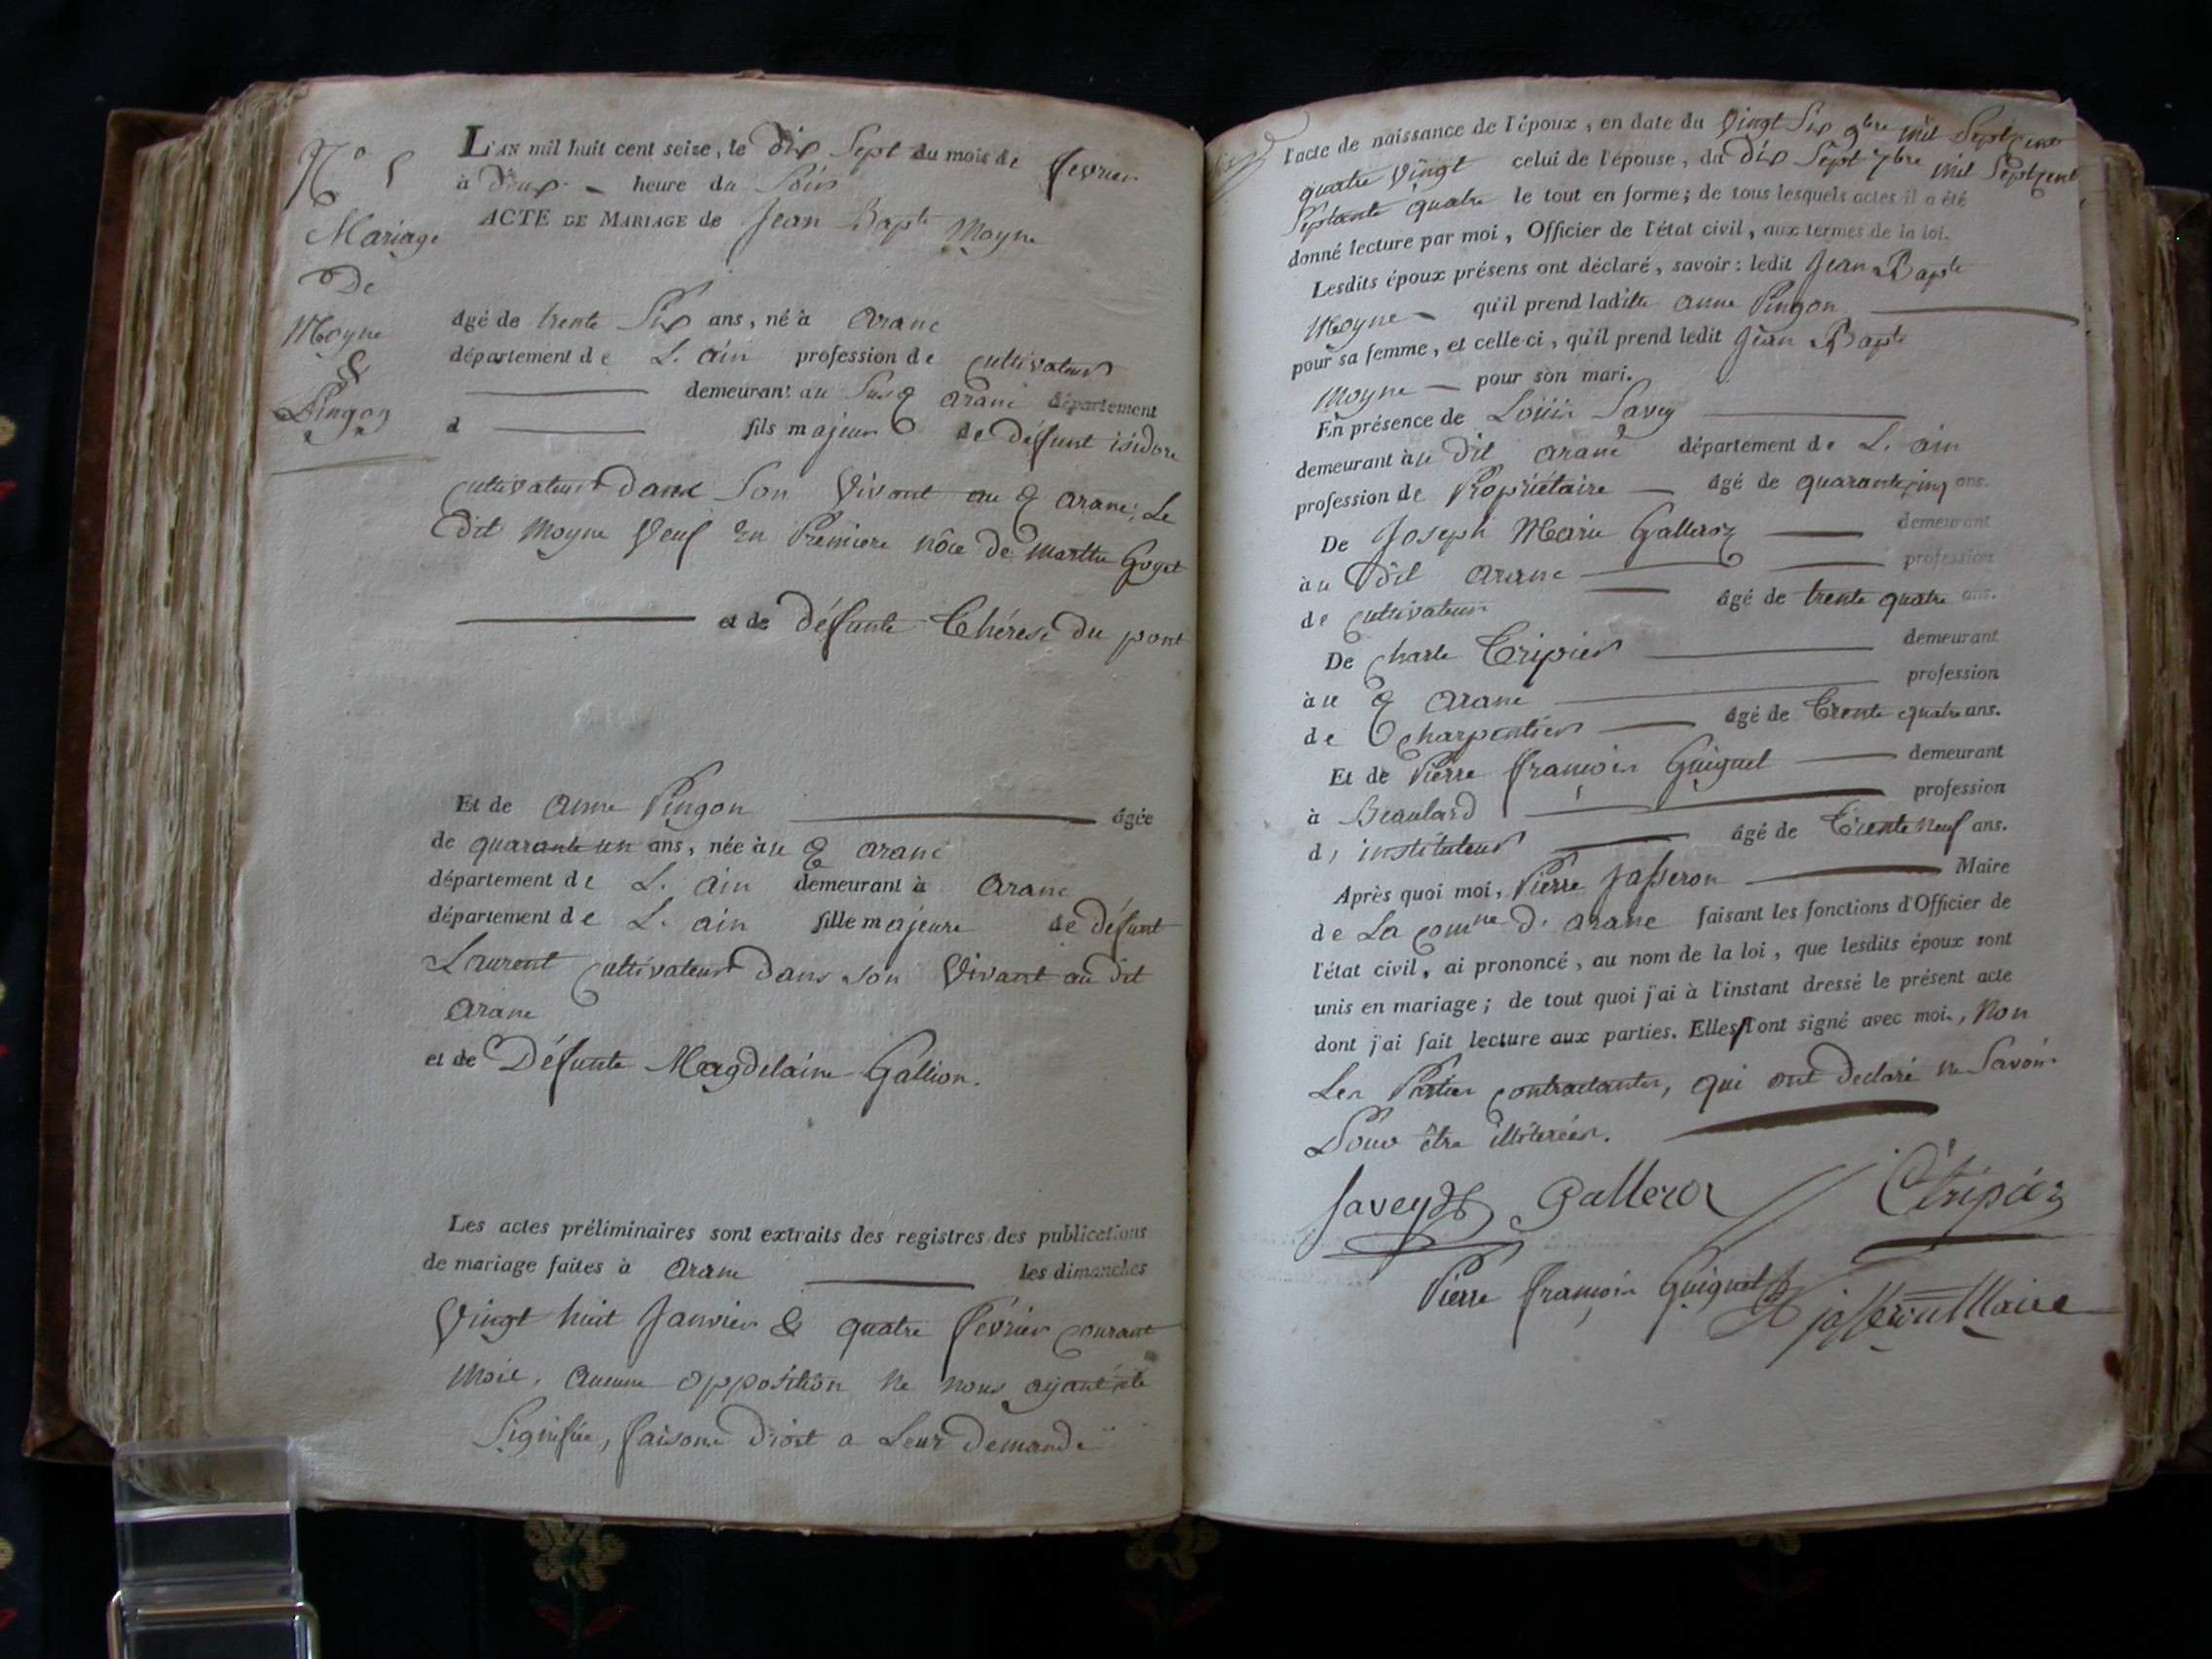 N.o 5
Mariage
De
Moyne
&
Pingon
L'AN mil huit cent seize, le dix Sept du mois de fevrier
à deux heure du Soir
ACTE DE MARIAGE de Jean Bapte Moyne
âgé de trente Six ans, né à aranc
département de L'ain profession de cultivateur
demeurant au Susd aranc département
d fils majeur de défunt isidore
cultivateur dans Son Vivant au d aranc, Le
dit Moyne Veuf En Premiere nôce de Marthe Goget
et de défunte Thérese du pont
Et de anne Pingon âgée
de quarante un ans, née au d aranc
département de L'ain demeurant à aranc
département de L'ain fille majeure de défunt
Laurent cultivateur dans son Vivant au dit
aranc
et de Défunte Magdelaine Gallion.
Les actes préliminaires sont extraits des registres des publications
de mariage faites à aranc les dimanches
Vingt huit Janvier & quatre février courant
mois, aucune opposition ne nous ayant été
Signifiée, faisons droit a Leur demande
l'acte de naissance de l'époux, en date du Vingt Six 9bre mil Sept cent
quatre Vingt celui de l'épouse, du dix Sept 7bre mil Sept cent
Septante quatre le tout en forme; de tous lesquels actes il a été
donné lecture par moi, Officier de l'état civil, aux termes de la loi.
Lesdits époux présens ont déclaré, savoir: ledit Jean Bapte
Moyne qu'il prend laditte anne Pingon
pour sa femme, et celle-ci, qu'il prend ledit Jean Bapte
Moyne pour son mari.
En présence de Loüis Savey
demeurant au dit aranc département de L'ain
profession de Propriétaire âgé de quarante cinq ans.
De Joseph Marie Galleroz demeurant
au dit aranc profession
de cultivateur âgé de trente quatre ans.
De Charle Tripier demeurant
au d aranc profession
de charpentier âgé de trente quatre ans.
Et de Pierre françois Guiguet demeurant
à Beaulard profession
d'instituteur âgé de trente neuf ans.
Après quoi moi, Pierre Jasseron Maire
de La comne d'aranc faisant les fonctions d'Officier de
l'état civil, ai prononcé, au nom de la loi, que lesdits époux sont
unis en mariage; de tout quoi j'ai à l'instant dressé le présent acte
dont j'ai fait lecture aux parties. Elles l'ont signé avec moi, Non
Les Parties contractantes, qui ont declaré ne Savoir
Pour être illitérées.
Savey Galleroz C tripier
Pierre françois Guiguet jasseron Maire